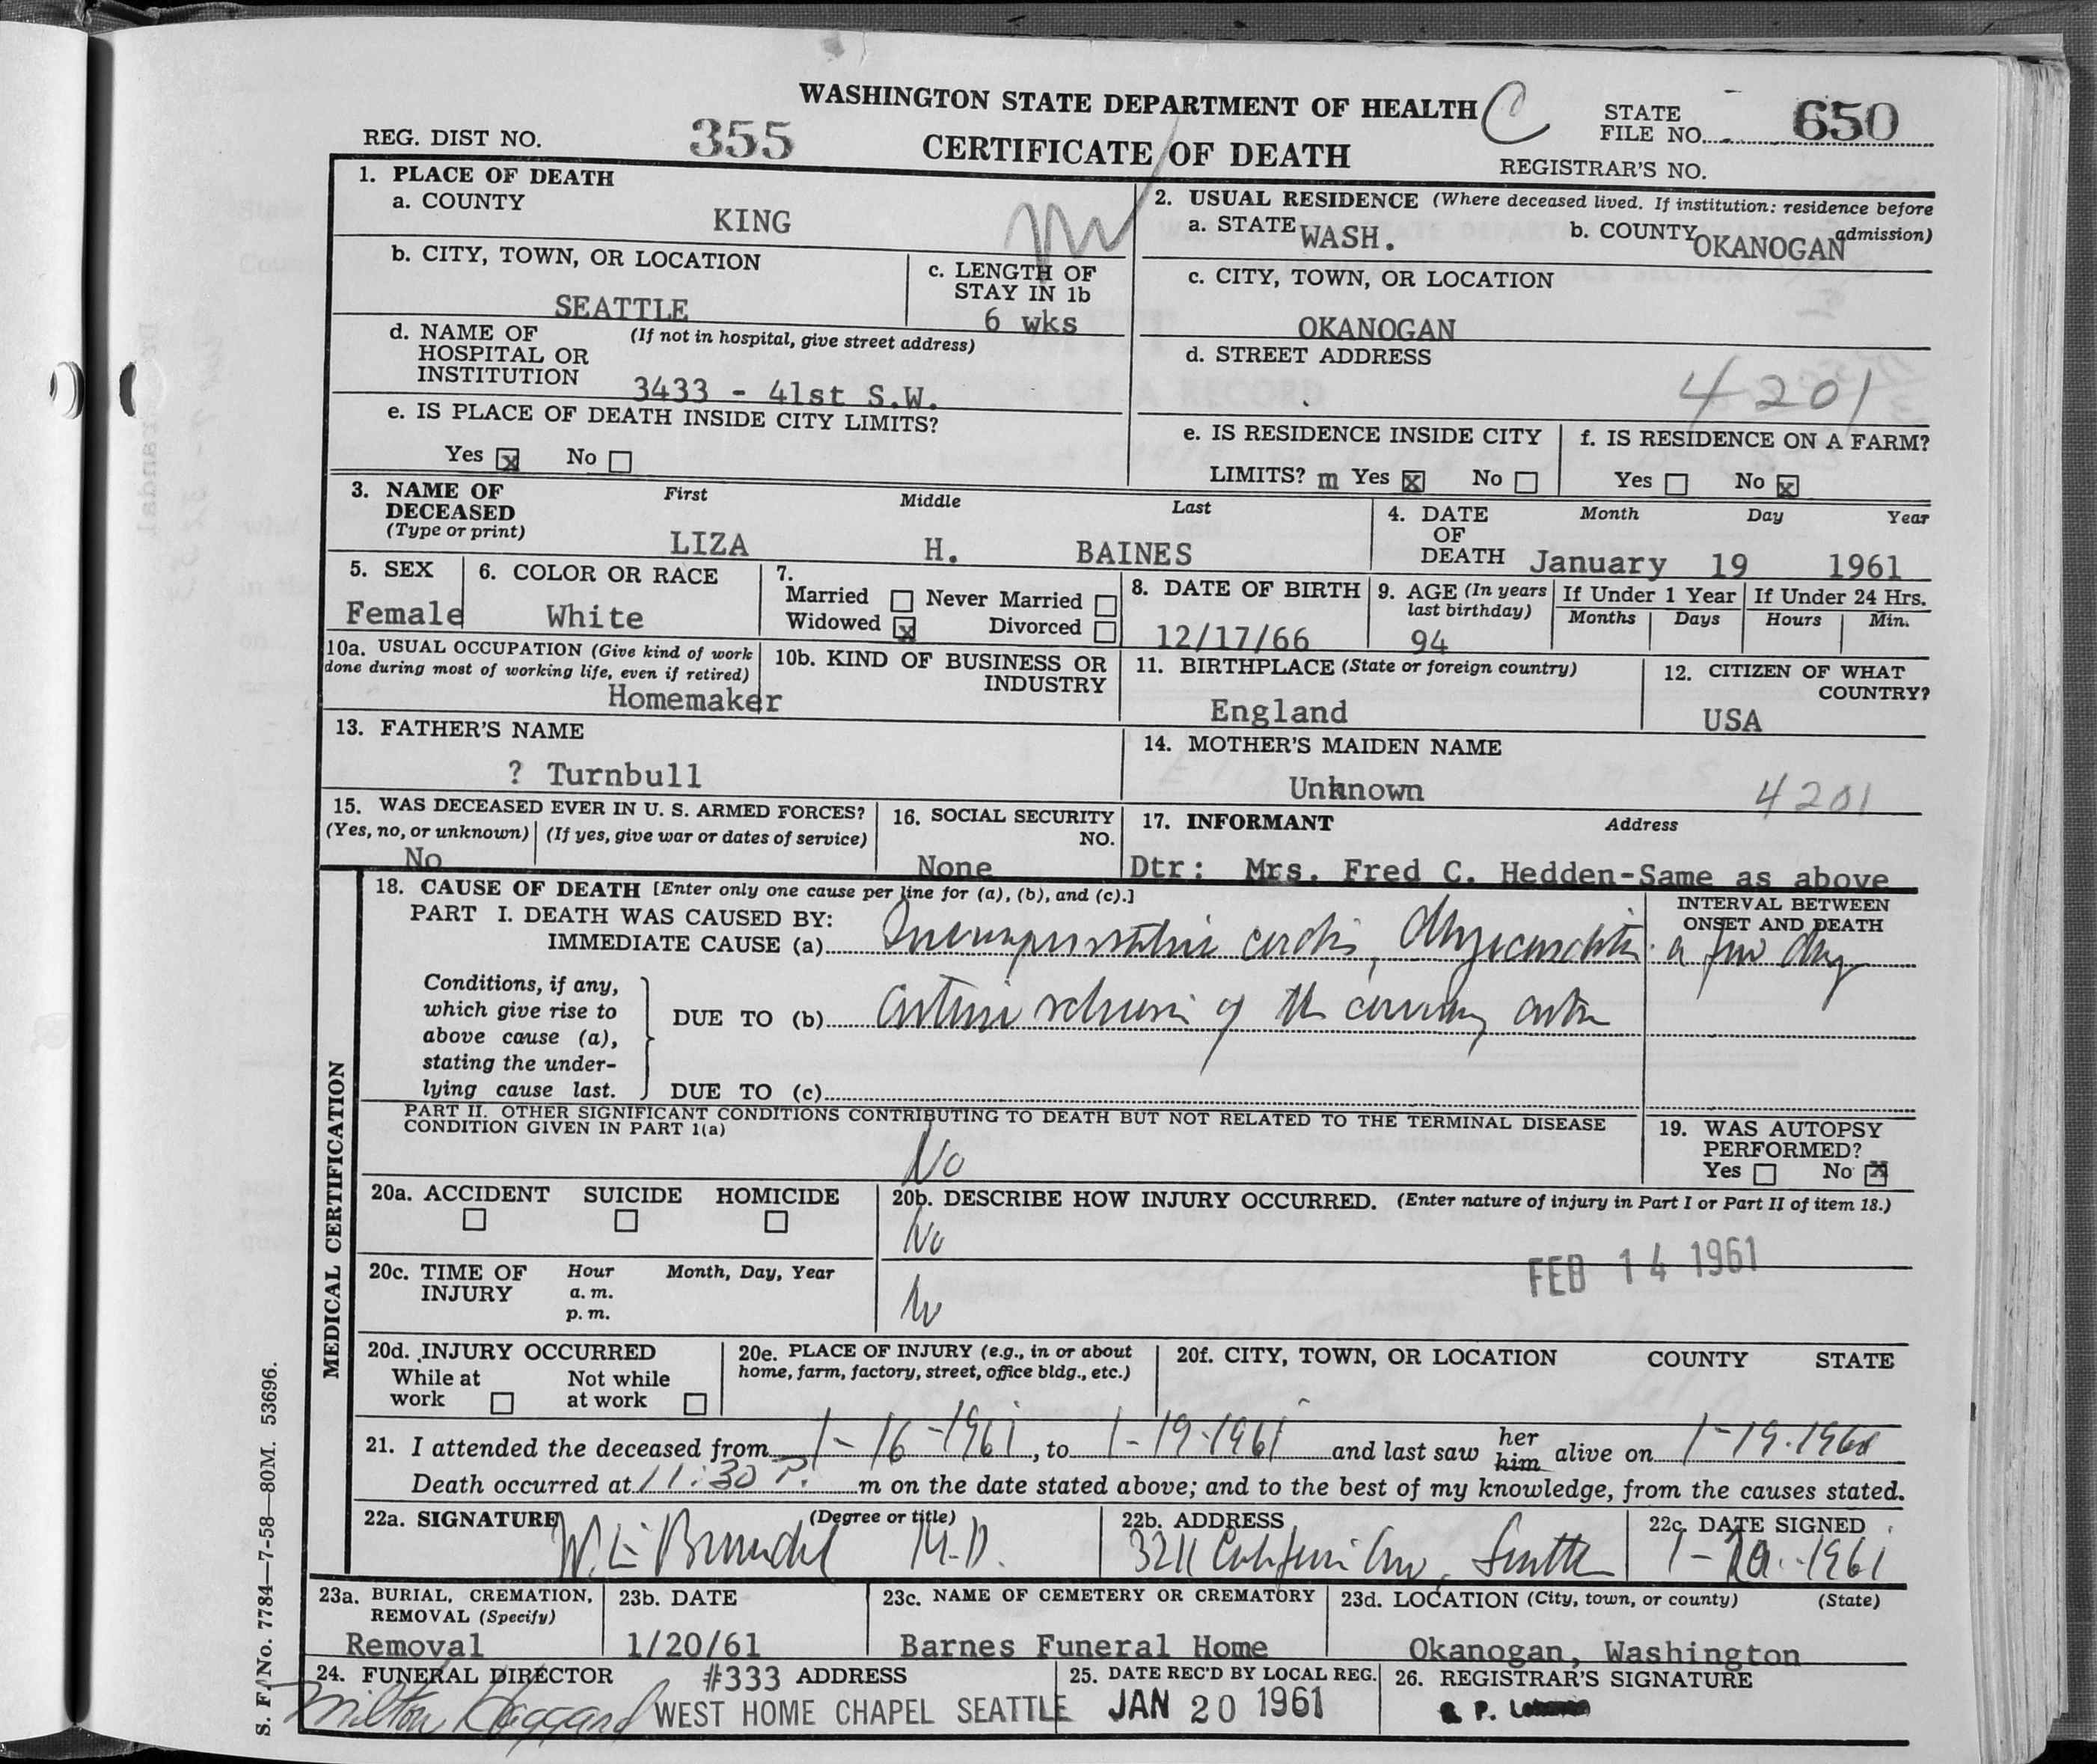 WASHINGTON STATE DEPARTMENT OF HEALTH C
STATE FILE NO. 650
REG. DIST NO. 355
CERTIFICATE OF DEATH
REGISTRAR'S NO.
1. PLACE OF DEATH
a. COUNTY
KING
2. USUAL RESIDENCE (Where deceased lived. If institution: residence before admission)
a. STATE WASH. b. COUNTY OKANOGAN
b. CITY, TOWN, OR LOCATION
SEATTLE
c. LENGTH OF STAY IN 1b
6 wks
c. CITY, TOWN, OR LOCATION
OKANOGAN
d. NAME OF HOSPITAL OR INSTITUTION (If not in hospital, give street address)
3433 - 41st S.W.
d. STREET ADDRESS
4201
e. IS PLACE OF DEATH INSIDE CITY LIMITS?
Yes x No
e. IS RESIDENCE INSIDE CITY LIMITS? m Yes x No
f. IS RESIDENCE ON A FARM?
Yes No x
3. NAME OF DECEASED (Type or print)
First Middle Last
LIZA H. BAINES
4. DATE OF DEATH
Month Day Year
January 19 1961
5. SEX
Female
6. COLOR OR RACE
White
7.
Married Never Married
Widowed x Divorced
8. DATE OF BIRTH
12/17/66
9. AGE (In years last birthday)
94
If Under 1 Year
Months Days
If Under 24 Hrs.
Hours Min.
10a. USUAL OCCUPATION (Give kind of work done during most of working life, even if retired)
Homemaker
10b. KIND OF BUSINESS OR INDUSTRY
11. BIRTHPLACE (State or foreign country)
England
12. CITIZEN OF WHAT COUNTRY?
USA
13. FATHER'S NAME
? Turnbull
14. MOTHER'S MAIDEN NAME
Unknown
4201
15. WAS DECEASED EVER IN U. S. ARMED FORCES?
(Yes, no, or unknown) (If yes, give war or dates of service)
No
16. SOCIAL SECURITY NO.
None
17. INFORMANT Address
Dtr: Mrs. Fred C. Hedden-Same as above
MEDICAL CERTIFICATION
18. CAUSE OF DEATH [Enter only one cause per line for (a), (b), and (c).]
PART I. DEATH WAS CAUSED BY:
IMMEDIATE CAUSE (a)
INTERVAL BETWEEN ONSET AND DEATH
a few days
Conditions, if any, which give rise to above cause (a), stating the underlying cause last.
DUE TO (b) of the coronary
DUE TO (c)
PART II. OTHER SIGNIFICANT CONDITIONS CONTRIBUTING TO DEATH BUT NOT RELATED TO THE TERMINAL DISEASE CONDITION GIVEN IN PART 1(a)
No
19. WAS AUTOPSY PERFORMED?
Yes No x
20a. ACCIDENT SUICIDE HOMICIDE
20b. DESCRIBE HOW INJURY OCCURRED. (Enter nature of injury in Part I or Part II of item 18.)
No
FEB 14 1961
20c. TIME OF INJURY
Hour Month, Day, Year
a. m.
p. m.
20d. INJURY OCCURRED
While at work Not while at work
20e. PLACE OF INJURY (e.g., in or about home, farm, factory, street, office bldg., etc.)
20f. CITY, TOWN, OR LOCATION COUNTY STATE
21. I attended the deceased from 1-16-1961, to 1-19-1961 and last saw her him alive on 1-19-1961
Death occurred at 11:30 P. m on the date stated above; and to the best of my knowledge, from the causes stated.
22a. SIGNATURE (Degree or title)
M.D.
22b. ADDRESS
3211 California Ave, Seattle
22c. DATE SIGNED
1-20-1961
23a. BURIAL, CREMATION, REMOVAL (Specify)
Removal
23b. DATE
1/20/61
23c. NAME OF CEMETERY OR CREMATORY
Barnes Funeral Home
23d. LOCATION (City, town, or county) (State)
Okanogan, Washington
24. FUNERAL DIRECTOR #333 ADDRESS
Milton Haggard WEST HOME CHAPEL SEATTLE
25. DATE REC'D BY LOCAL REG.
JAN 20 1961
26. REGISTRAR'S SIGNATURE
S. F. No. 7784—7-58—80M. 53696.